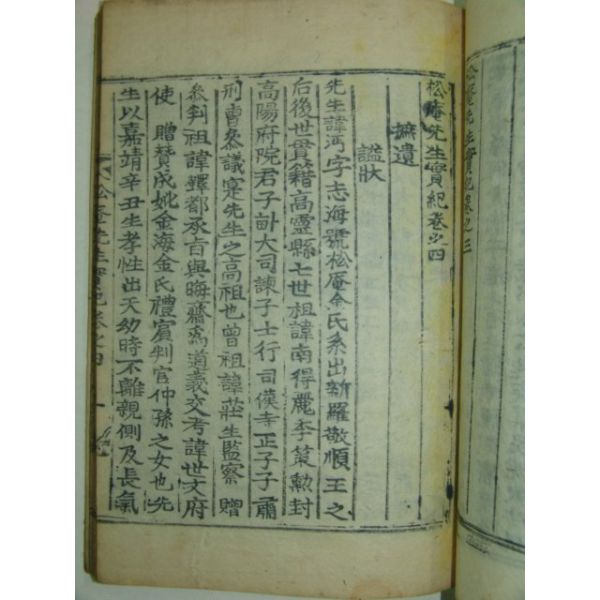 松庵先生實紀卷之三
松庵先生實紀卷之四
摭遺
諡狀
先生諱沔字志海號松庵金氏系出新羅敬順王之
后後世貫籍高靈縣七世祖諱南得麗季策勳封
高陽府院君子大司諫子士行司僕寺正子子肅
刑曹參議寔先生之高祖也曾祖諱莊生監察 贈
參判祖諱鐸都承旨與晦齋爲道義交考諱世文府
使 贈贊成妣金海金氏禮賓判官仲孫之女也先
生以嘉靖辛丑生孝性出天幼時不離親側及長氣
松庵先生實紀卷之四 一